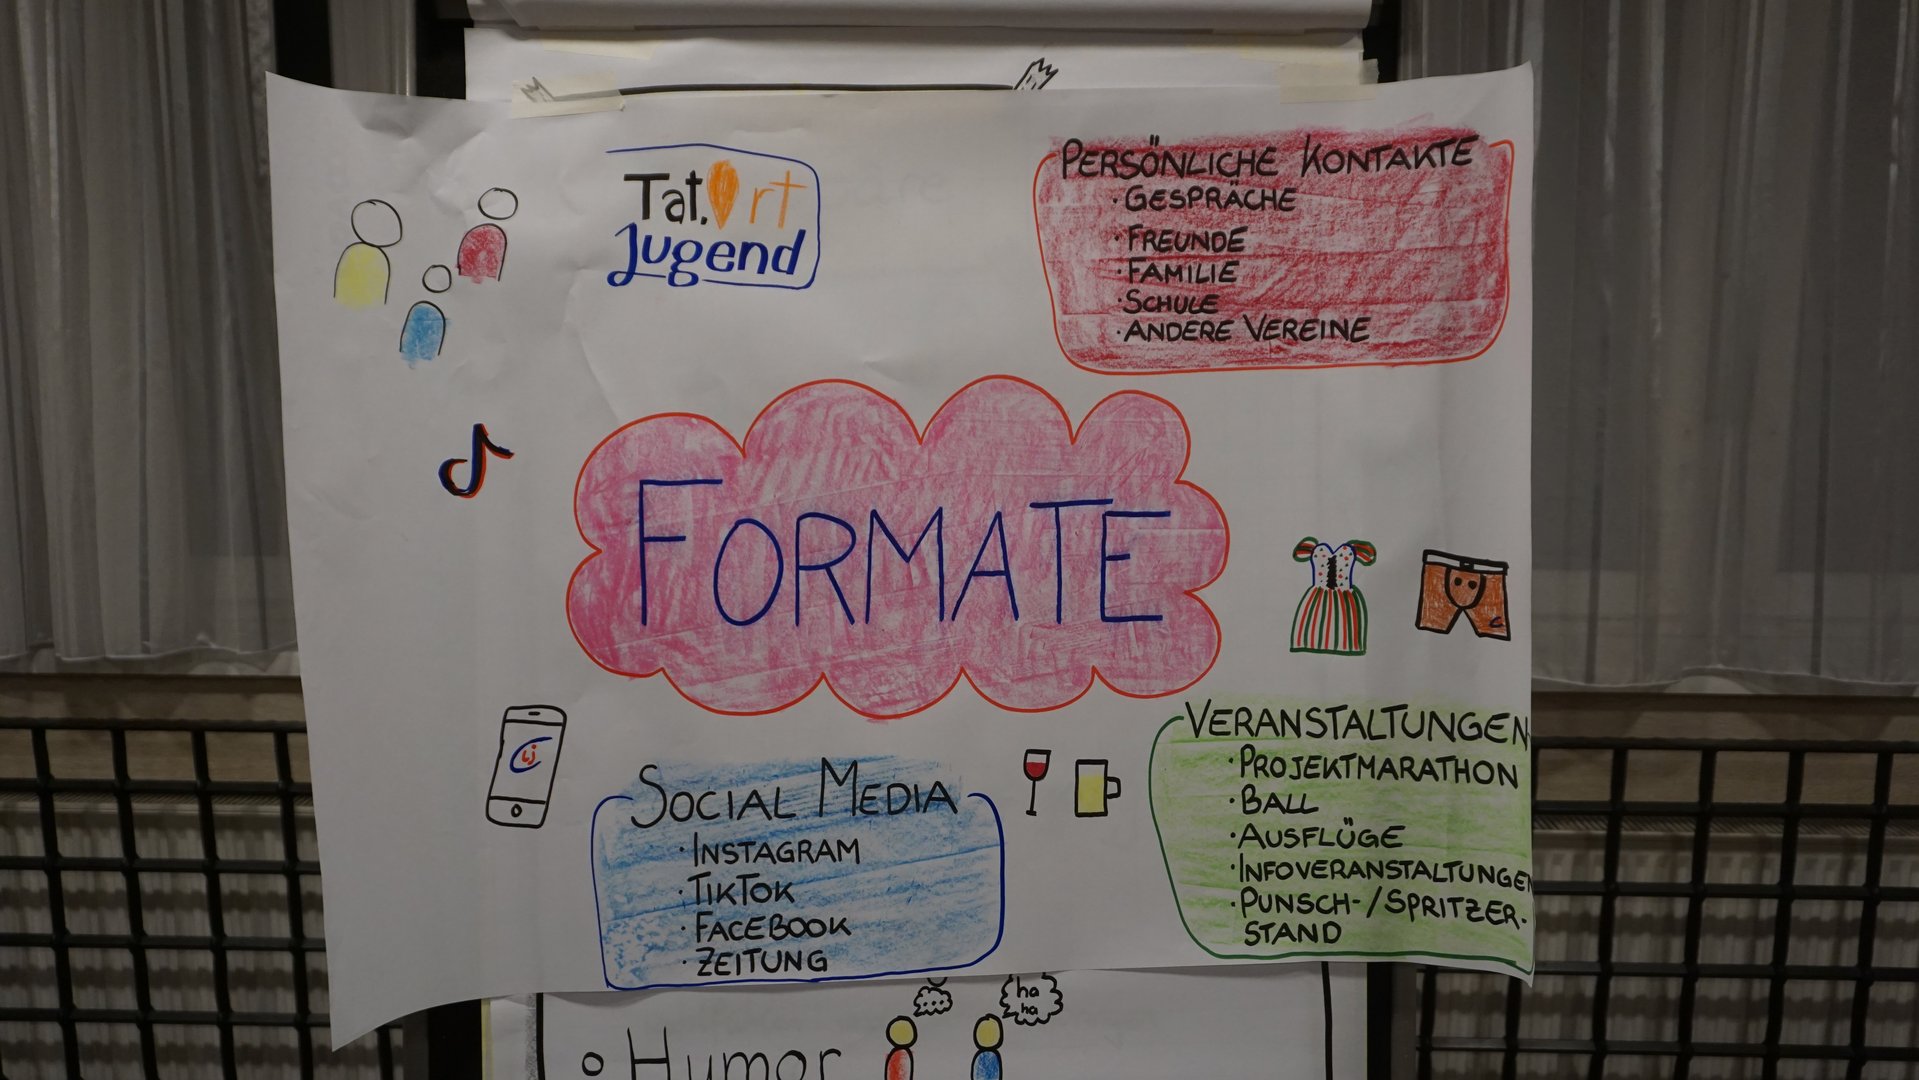 Tat.Ort
Jugend
PERSÖNLICHE KONTAKTE
· GESPRÄCHE
· FREUNDE
· FAMILIE
· SCHULE
· ANDERE VEREINE
FORMATE
LJ
SOCIAL MEDIA
· INSTAGRAM
· TIKTOK
· FACEBOOK
· ZEITUNG
VERANSTALTUNGEN
· PROJEKTMARATHON
· BALL
· AUSFLÜGE
· INFOVERANSTALTUNGEN
· PUNSCH-/SPRITZER-
STAND
ha
ha
Humor